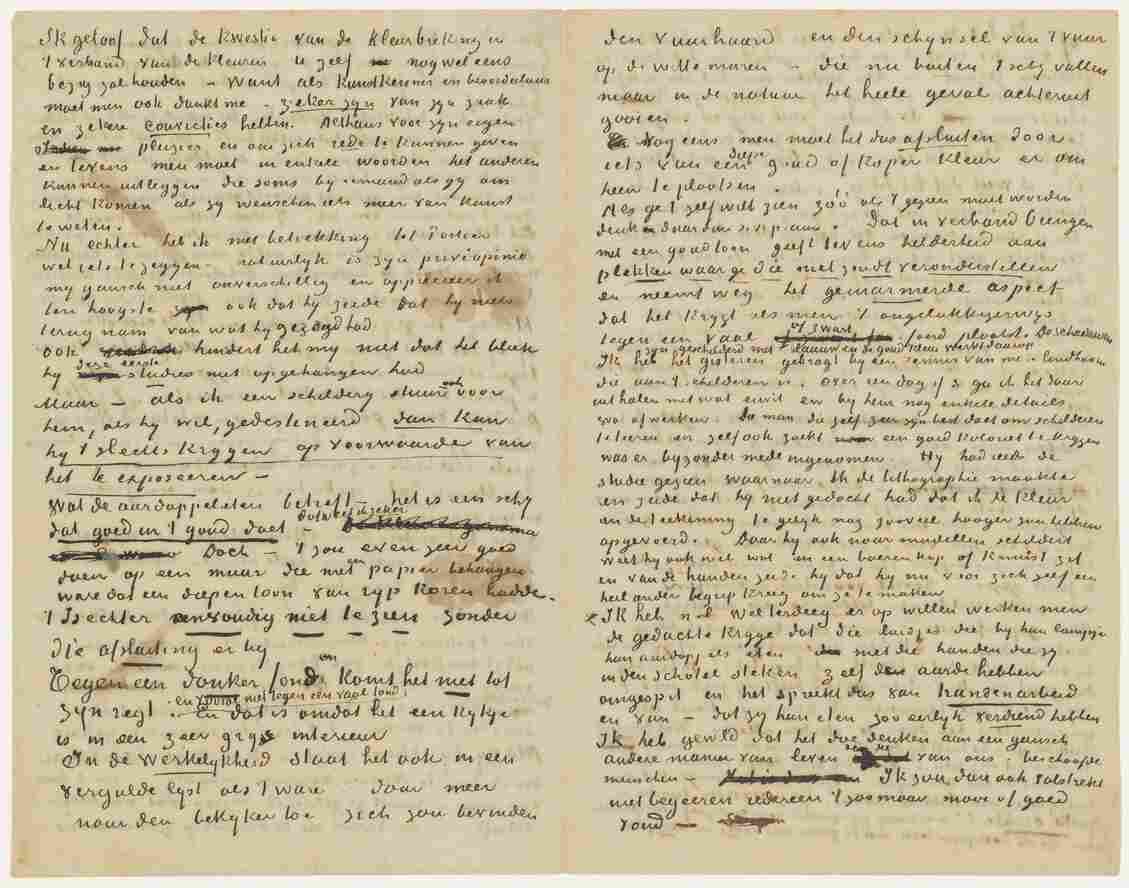 Ik geloof dat de kwestie van de kleurbreking en
't verband van de kleuren U zelf nog wel eens
bezig zal houden – Want als kunstkenner en beoordelaar
moet men ook dunkt me – zeker zijn van zijn zaak
en zekere convicties hebben. Althans voor zijn eigen
plezier en om zich rede te kunnen geven
en tevens men moet in enkele woorden het anderen
kunnen uitleggen die soms bij iemand als gij om
licht komen als zij wenschen iets meer van kunst
te weten.
Nu echter heb ik met betrekking tot Portier
wel iets te zeggen – natuurlijk is zijn privé opinie
mij gansch niet onverschillig en apprecieer ik
ten hoogste ook dat hij zeide dat hij niets
terug nam van wat hij gezegd had
ook hindert het mij niet dat het bleek
hij deze eerste studies niet opgehangen had
Maar – als ik een schilderij stuur ook voor
hem, als hij wil, gedestineerd dan kan
hij 't slechts krijgen op voorwaarde van
het te exposeeren –
Wat de aardappeleters betreft – het is een schij
dat goed in 't goud doet – dat weet ik zeker
Doch – 't zou even zeer goed
doen op een muur die met een papier behangen
ware dat een diepen toon van rijp koren hadde.
't Is echter eenvoudig niet te zien zonder
die afsluiting er bij
Tegen een donker fond komt het niet tot
zijn regt en vooral niet tegen een vaal fond.
En dat is omdat het een kijkje
is in een zeer grijs interieur
In de werkelijkheid staat het ook in een
vergulde lijst als 't ware daar meer
naar den bekijker toe zich zou bevinden
den vuurhaard en den schijnsel van 't vuur
op de witte muren – die nu buiten 't schij vallen
maar in de natuur het heele geval achteruit
gooien.
Nog eens men moet het dus afsluiten door
iets van een diepe goud of koper kleur er om
heen te plaatsen.
Als ge 't zelf wilt zien zóó als 't gezien moet worden
denk daar dan s.v.p. aan. Dat in verband brengen
met een goud toon geeft tevens helderheid aan
plekken waar ge die niet zoudt veronderstellen
en neemt weg het gemarmerde aspect
dat het krijgt als men 't ongelukkigerwijs
tegen een vaal of zwart fond plaatst. De schaduwen
zijn geschilderd met blaauw en de goud kleur werkt daarop
Ik heb het gisteren gebragt bij een kennis van me te Eindhoven
die aan 't schilderen is. Over een dag of 3 ga ik het daar
uithalen met wat eiwit en bij hem nog enkele details
wat afwerken. De man die zelf zeer zijn best doet om schilderen
te leeren en zelf ook zoekt een goed koloriet te krijgen
was er bijzonder mede ingenomen. Hij had reeds de
studie gezien waarnaar ik de lithographie maakte
en zeide dat hij niet gedacht had dat ik de kleur
en de teekening te gelijk nog zooveel hooger zou hebben
opgevoerd. Daar hij ook naar modellen schildert
weet hij ook wel wat in een boeren kop of knuist zit
en van de handen zeide hij dat hij nu voor zich zelf een
heel ander begrip kreeg om ze te maken
Ik heb n.l. wel terdeeg er op willen werken men
de gedachte krijge dat die luidjes die bij hun lampje
hun aardappels eten met die handen die zij
in den schotel steken zelf de aarde hebben
omgespit en het spreekt dus van handenarbeid
en van – dat zij hun eten zoo eerlijk verdiend hebben
Ik heb gewild dat het doe denken aan een gansch
andere manier van leven dan die van ons. beschaafde
menschen – Ik zou dan ook volstrekt
niet begeeren iedereen 't zoo maar mooi of goed
vond –